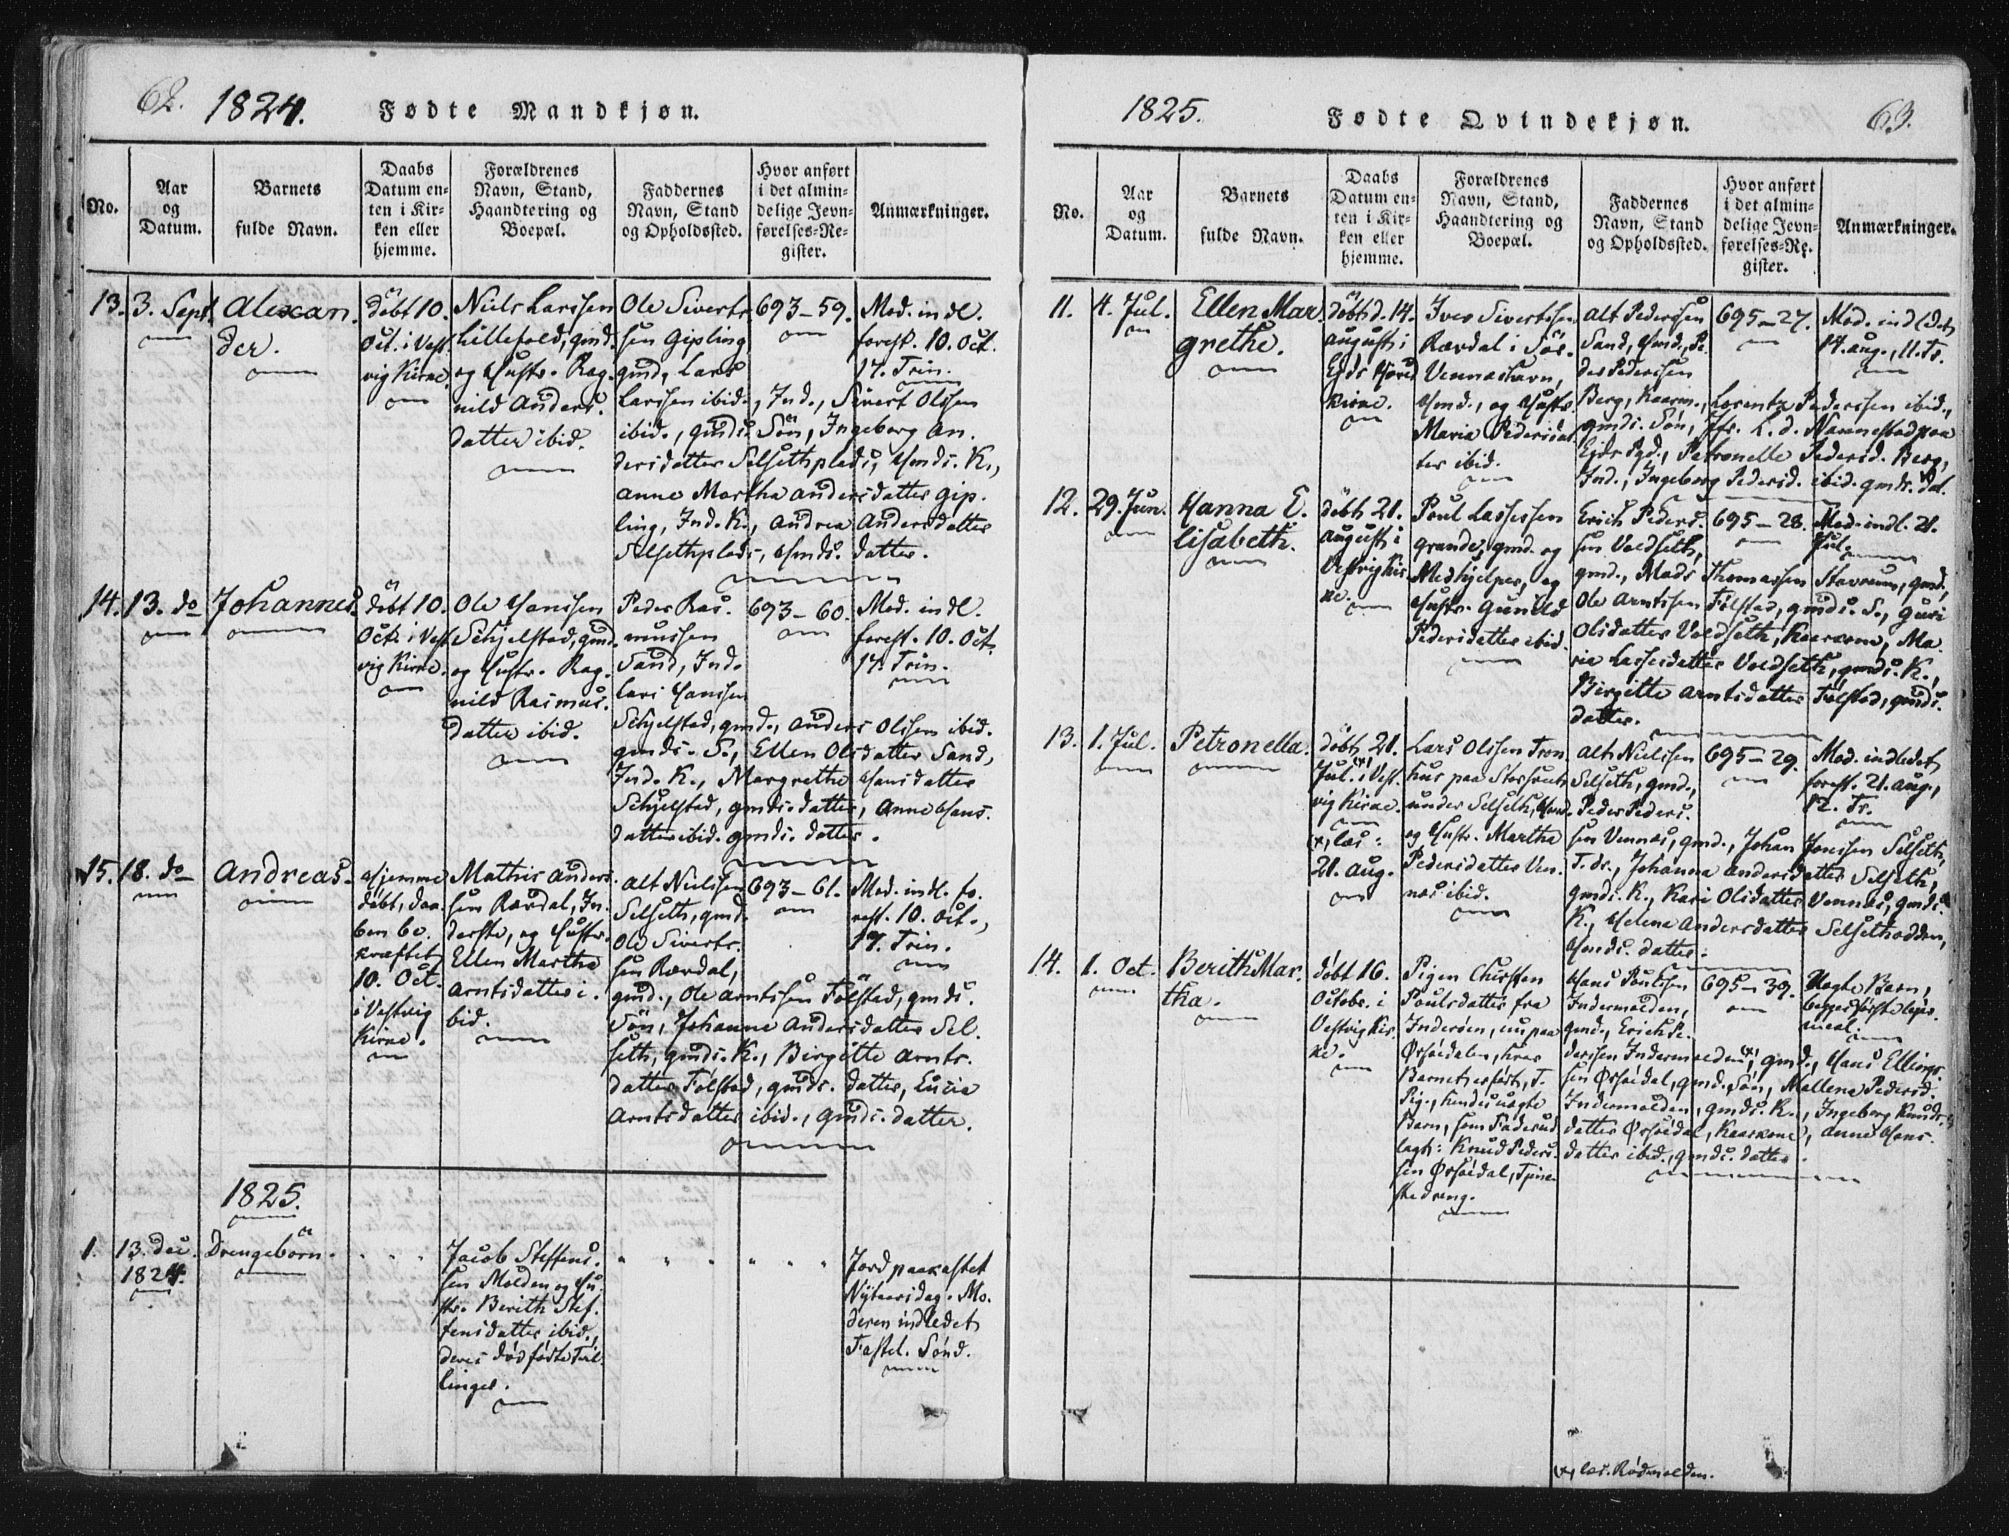 62. 1824. Fødte Mandkjøn.
No.
Aar
og
Datum.
Barnets
fulde Navn.
Daabs
Datum en-
ten i Kir-
ken eller
hjemme.
Forældrenes
Navn, Stand,
Haandtering og
Boepæl.
Faddernes
Navn, Stand
og Opholdssted.
Hvor anført
i det almin-
delige Jevn-
førelses-Re-
gister.
Anmærkninger.
13.
3. Sept.
Alexan-
der.
döbt 10.
Oct. i Vest-
vig Kirke.
Niels Larssen
Lillefold, gmd.
og Hustr. Rag-
nild Anders-
datter ibid.
Ole Siverts-
sen Gipling
gmd, Lars
Larssen ibid., Ind., Sivert Olssen
ibid., gmds. Sön, Ingeborg An-
dersdatter Selsethplads, Hmds. K.,
Anne Martha Andersdatter Gip-
ling, Ind. K., Andrea Andersdatter
Selsethplads, Hmds. datter.
693-59.
Mod. indl.
forest. 10. Oct.
17. Trin.
14.
13. do
Johannes.
döbt 10.
Oct. i Vest-
vig Kirke.
Ole Hanssen
Schjelstad, gmd.
og Hustr. Rag-
nild Rasmus-
datter ibid.
Peder Ras-
mussen
Sand, Ind.
Lars Hanssen
Schjelstad, gmd., Anders Olssen ibid.
gmds. S., Ellen Olsdatter Sand,
Ind. K., Margrethe Hansdatter
Schjelstad, gmds. datter, Anne Hans-
datter ibid. gmds. datter.
693-60.
Mod. indl.
forest. 10. Oct.
17. Trin.
15.
18. do
Andreas.
Hjemme
döbt, daa-
ben be-
kræftet
10. Oct.
i Vestvig
Kirke.
Mathis Anders-
sen Rævdal, In-
derste, og Hustr.
Ellen Martha
Arntsdatter i-
bid.
Alt Nielssen
Selseth, gmd.
Ole Siverts-
sen Rævdal,
gmd., Ole Arntssen Fölstad, gmds.
Sön, Johanne Andersdatter Sel-
seth, gmds. K., Birgitte Arnts-
datter Fölstad, gmds. datter, Lucia
Arntsdatter ibid., gmds. datter.
693-61.
Mod. indl. fo-
rest. 10. Oct.,
17. Trin.
1825.
1.
13. Dec.
1824.
Drengebörn.
Jacob Steffens-
sen Molden og Hu-
str. Berith Stef-
fensdatter ibid.,
deres dødfødte Tvil-
linger.
Jord paakastet
Nytaarsdag. Mo-
deren indledet
Fastel. Sönd.
1825. Fødte Qvindekjøn. 63.
No.
Aar
og
Datum.
Barnets
fulde Navn.
Daabs
Datum en-
ten i Kir-
ken eller
hjemme.
Forældrenes
Navn, Stand,
Haandtering og
Boepæl.
Faddernes
Navn, Stand
og Opholdssted.
Hvor anført
i det almin-
delige Jevn-
førelses-Re-
gister.
Anmærkninger.
11.
4. Jul.
Ellen Mar-
grethe.
döbt d. 14.
August i
Egds Hoved
Kirke.
Iver Sivertssen
Rævdal i Sör-
Vennashavn,
Hmd., og Hustr.
Maria Pedersdat-
ter ibid.
Alt Pederssen
Sand, Hmd., Pe-
der Pederssen
Berg, Kaarm., Lorentz Pederssen ibid.,
gmds. Sön, Jfr. L. d. Nannestad paa
Egds Pgd., Petronelle Pedersd. Berg,
Ind., Ingeborg Pedersd. ibid. gmds. dat.
695-27.
Mod. indledet
14. Aug., 11. Tr.
12.
29. Jun.
Hanna E-
lisabeth.
döbt 21.
August i
Vestvig Kir-
ke.
Poul Lassessen
Grande, gmd. og
Medhjelper, og
Hustr. Gunild
Pedersdatter ibid.
Erich Peders-
sen Voldseth,
gmd., Mads Thomassen Stavrum, gmd.,
Ole Arntssen Fölstad, gmds. S., Guri
Olsdatter Voldseth, Kaarkone, Ma-
ria Lassesdatter Voldseth, gmds. K.,
Birgitte Arntsdatter Fölstad, gmds.
datter.
695-28.
Mod. indl. 21.
Jul.
13.
1. Jul.
Petronella.
döbt 21.
Jul. (x) i Vest-
vig Kirke.
(x, læs:
21. Aug.
Lars Olssen Tron-
hus paa
under Selseth, Hmd.
og Hustr. Martha
Pedersdatter Ven-
nes ibid.
Alt Nielssen
Selseth, gmd.,
Peder Peders-
sen Vennes, gmd., Johan Jonssen Selseth,
T. dr., Johanna Andersdatter Selseth,
gmds. K., Kari Olsdatter Vennes, gmds.
K., Helena Andersdatter Selsethodden,
Hmds. datter.
695-29.
Mod. indledet
forest. 21. Aug.,
12. Tr.
14.
1. Oct.
Berith Mar-
tha.
döbt 16.
Octobr. i
Vestvig Kir-
ke.
Pigen Chirsten
Poulsdatter fra
Inderöen, nu paa
Ørsöedalen, hvor
Barnet er født, T.
Pig., hendes uægte
Barn, som Fader ud-
lagt: Knud Peders-
sen Ørsöedal, Tjene-
stedreng.
Hans Poulssen
Indermolden,
gmd., Erich Pe-
derssen Indermolden (x), gmd., Hans Ellings-
sen Ørsöedal, gmd. Sön, Mallena Pedersd.
Indermolden, gmds. K., Ingeborg Knuds-
datter Ørsöedal, Kaarkone, Anne Hans-
datter ibid., gmds. datter.
695-39.
Uægte Barn,
begges første leier-
maal.
(x, læs. Rødmolden.